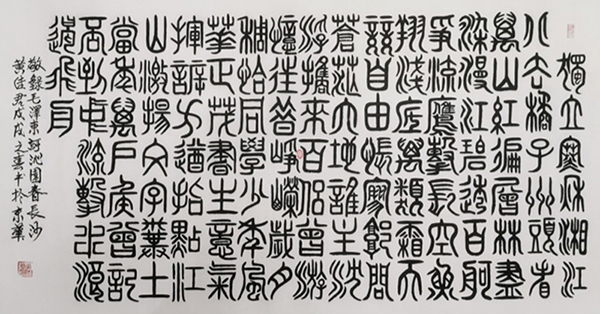 獨立寒秋湘江
北去橘子州頭看
萬山紅徧層林盡
染漫江碧透百舸
爭流鷹擊長空魚
翔淺底萬類霜天
競自由悵寥廓問
蒼茫大地誰主沉
浮攜來百侶曾游
憶往昔崢嶸歲夕
稠恰同學少年風
華正茂書生意氣
揮諺方遒指點江
山激揚文字糞土
當年萬戶侯曾記
否到中流擊水浪
遏飛舟
敬錄毛澤東詞沁園春長沙
黃佳君戊戌之春於京華